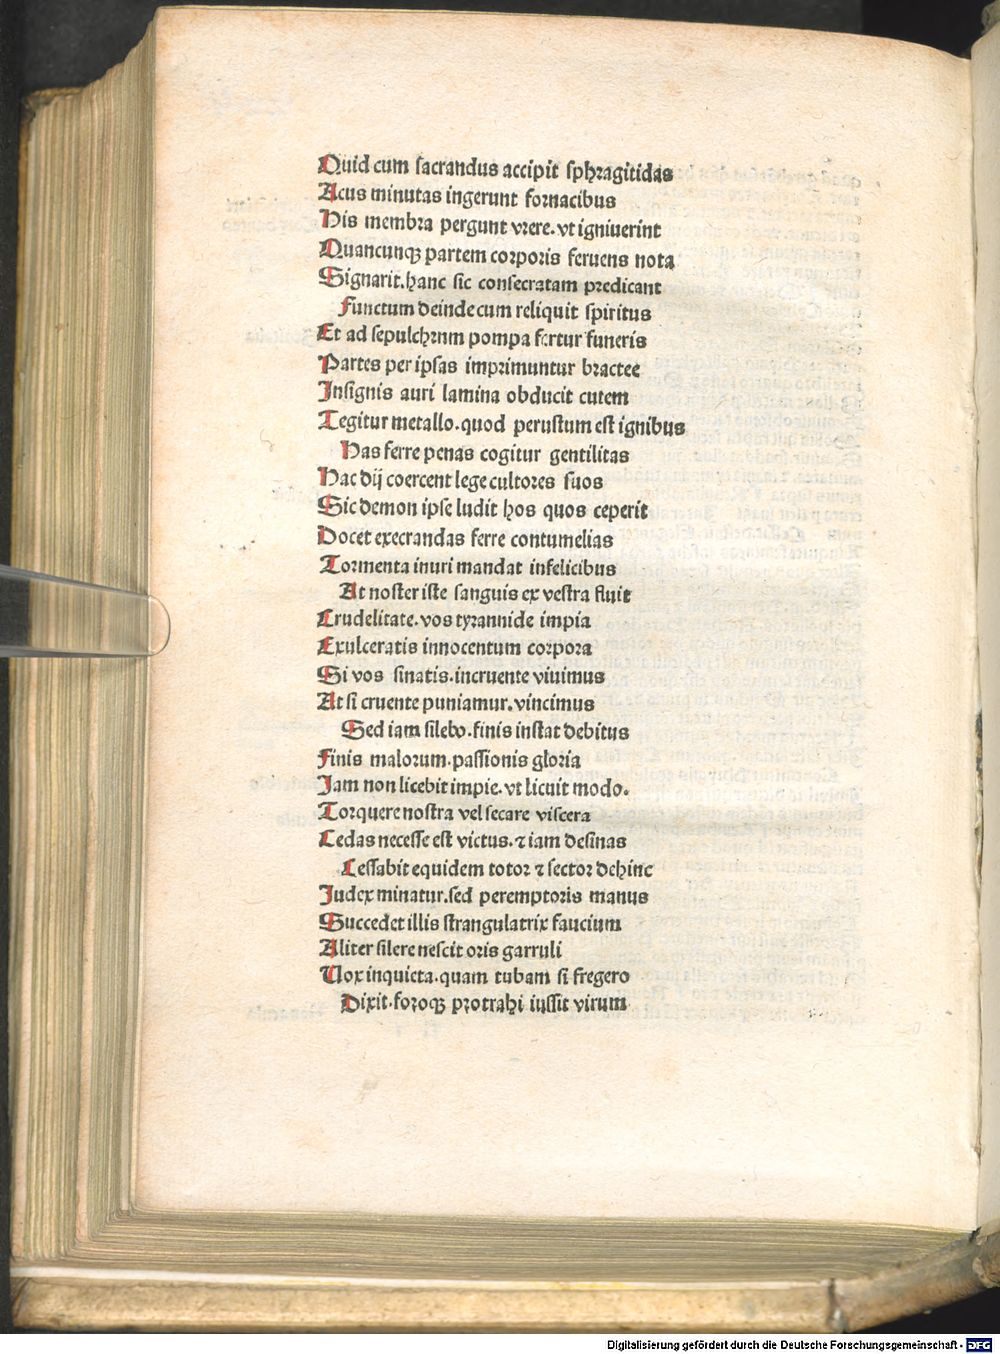 Quid cum sacrandus accipit sphragitidas
Acus minutas ingerunt fornacibus
His membra pergunt vrere. vt igniuerint
Quancunqꝫ partem corporis feruens nota
Signarit. hanc sic consecratam predicant
Functum deinde cum reliquit spiritus
Et ad sepulchrum pompa fertur funeris
Partes per ipsas imprimuntur bractee
Insignis auri lamina obducit cutem
Tegitur metallo. quod perustum est ignibus
Has ferre penas cogitur gentilitas
Hac dij coercent lege cultores suos
Sic demon ipse ludit hos quos ceperit
Docet execrandas ferre contumelias
Tormenta inuri mandat infelicibus
At noster iste sanguis ex vestra fluit
Crudelitate. vos tyrannide impia
Exulceratis innocentum corpora
Si vos sinatis. incruente viuimus
At si cruente puniamur. vincimus
Sed iam silebo. finis instat debitus
Finis malorum. passionis gloria
Iam non licebit impie. vt licuit modo.
Torquere nostra vel secare viscera
Cedas necesse est victus. ⁊ iam desinas
Cessabit equidem totor ⁊ sector dehinc
Iudex minatur. sed peremptoris manus
Succedet illis strangulatrix faucium
Aliter silere nescit oris garruli
Vox inquieta. quam tubam si fregero
Dixit. foroqꝫ protrahi iussit virum
Digitalisierung gefördert durch die Deutsche Forschungsgemeinschaft - DFG